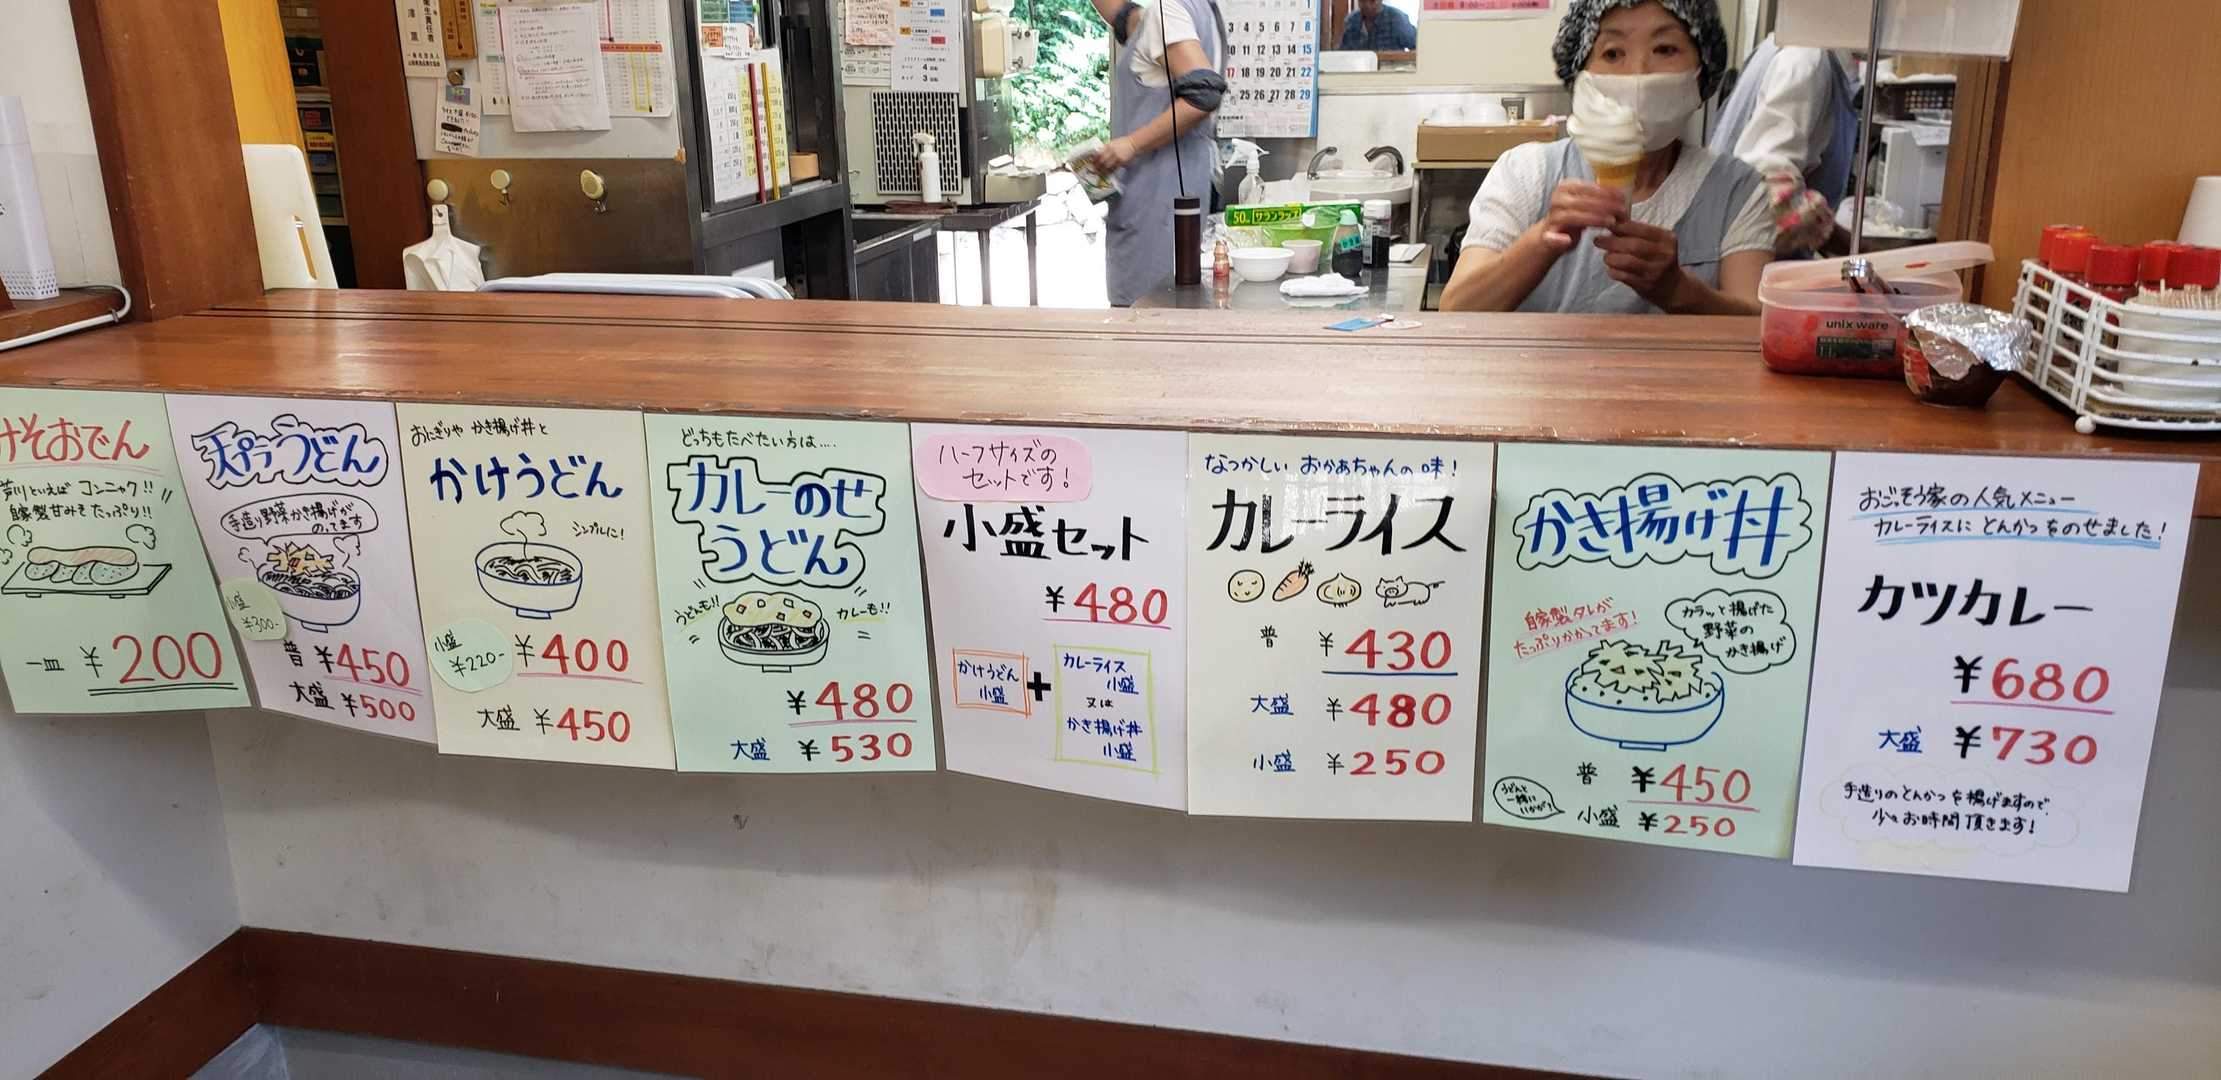 けそおでん
芦川といえば コンニャク!!
自家製甘みそ たっぷり!!
一皿 ¥200
天プラうどん
手造り野菜かき揚げが
のってます
小盛
¥300-
普 ¥450
大盛 ¥500
おにぎりや かき揚げ丼と
かけうどん
シンプルに!
小盛
¥220-
¥400
大盛 ¥450
どっちもたべたい方は....
カレーのせ
うどん
うどんも!!
カレーも!!
¥480
大盛 ¥530
ハーフサイズの
セットです!
小盛セット
¥480
かけうどん
小盛
+
カレーライス
小盛
又は
かき揚げ丼
小盛
なつかしい おかあちゃんの味!
カレーライス
普 ¥430
大盛 ¥480
小盛 ¥250
かき揚げ丼
自家製タレが
たっぷりかかってます!
カラッと揚げた
野菜の
かき揚げ
普 ¥450
うどんと
一緒に
いかが?
小盛 ¥250
おごっそう家の人気メニュー
カレーライスに とんかつをのせました!
カツカレー
¥680
大盛 ¥730
手造りのとんかつを揚げますので
少々お時間頂きます!
unix ware
50m サランラップ